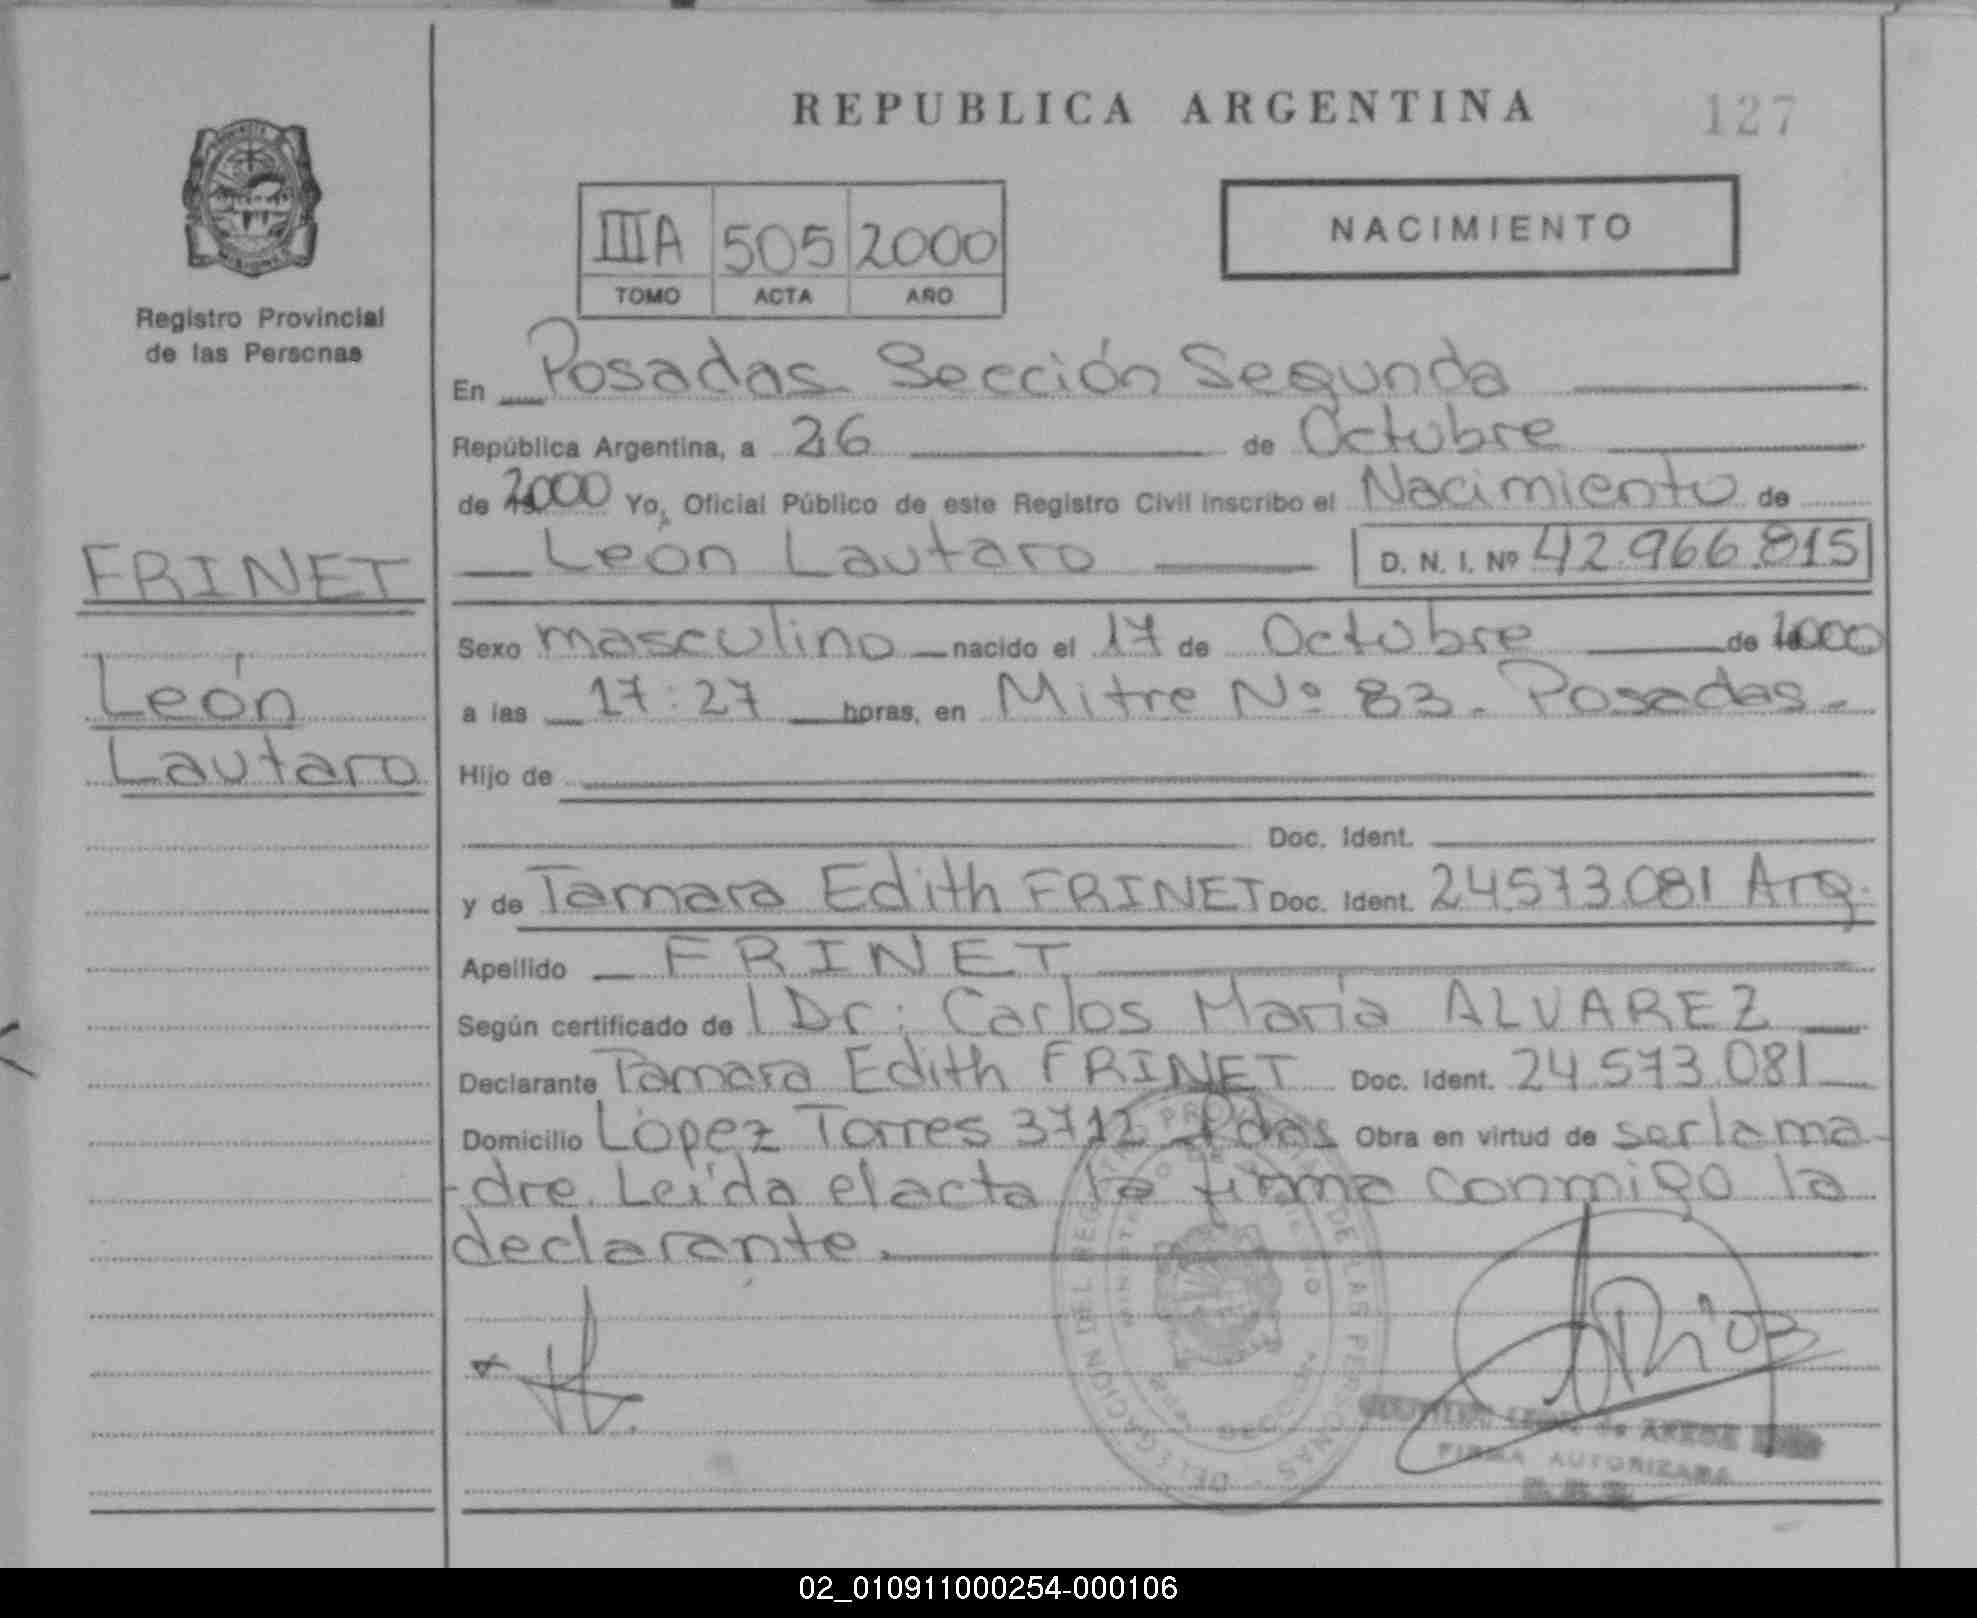 REPUBLICA ARGENTINA
127
IIIA 505 2000
TOMO ACTA AÑO
NACIMIENTO
Registro Provincial
de las Personas
En Posadas Sección Segunda
República Argentina, a 26 de Octubre
de 2000 Yo, Oficial Público de este Registro Civil inscribo el Nacimiento de
León Lautaro D. N. I. Nº 42.966.815
FRINET
León
Lautaro
Sexo masculino nacido el 17 de Octubre de 2000
a las 17:27 horas, en Mitre Nº 83. Posadas.
Hijo de
Doc. Ident.
y de Tamara Edith FRINET Doc. Ident. 24.573.081 Arg.
Apellido FRINET
Según certificado de l Dr: Carlos María ALVAREZ
Declarante Tamara Edith FRINET Doc. Ident. 24.573.081
Domicilio López Torres 3712 Pdas Obra en virtud de ser la ma-
-dre. Leída el acta la firma conmigo la
declarante.
DELEGACION DEL REGISTRO PROVINCIAL DE LAS PERSONAS
FIRMA AUTORIZADA
02_010911000254-000106